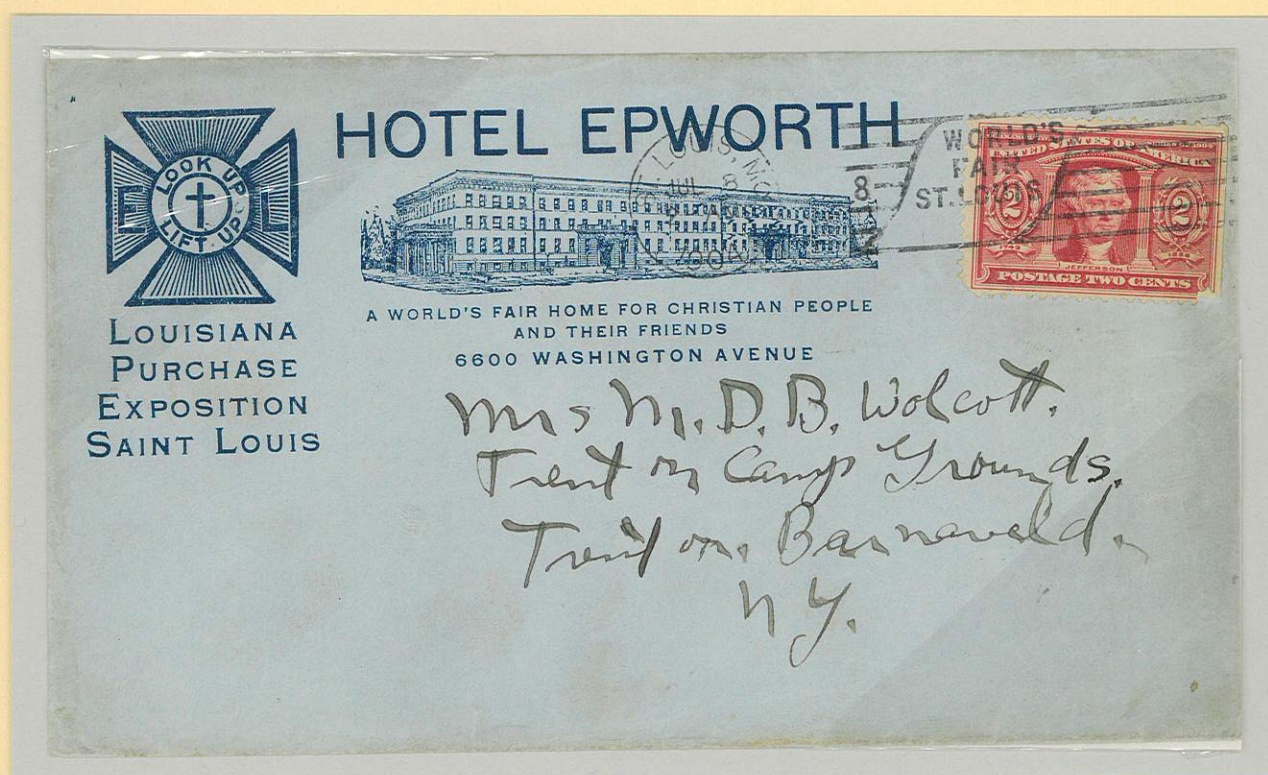 HOTEL EPWORTH
LOOK UP
LIFT UP
E L
LOUISIANA
PURCHASE
EXPOSITION
SAINT LOUIS
A WORLD'S FAIR HOME FOR CHRISTIAN PEOPLE
AND THEIR FRIENDS
6600 WASHINGTON AVENUE
LOUIS, MO.
JUL 8
AM
WORLD'S
FAIR
ST. LOUIS
UNITED STATES OF AMERICA
2 2
JEFFERSON
POSTAGE TWO CENTS
Mrs M. D. B. Wolcott.
Trenton Camp Grounds.
Trenton. Barneveld.
NY.